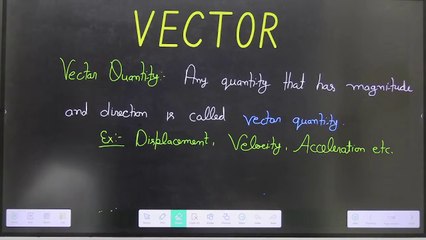 VECTOR
Vector Quantity:- Any quantity that has magnitude
and direction is called vector quantity.
Ex:- Displacement, Velocity, Acceleration etc.